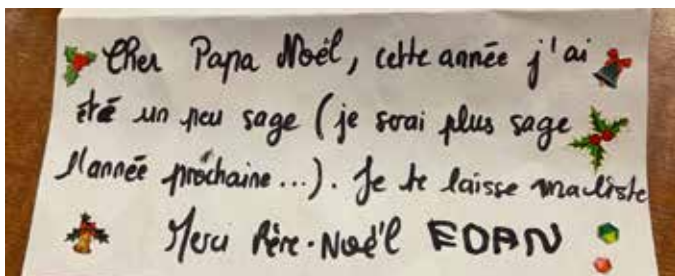 Cher Papa Noël, cette année j'ai
été un peu sage (je serai plus sage
l'année prochaine...). Je te laisse ma liste
Merci Père-Noë'l EDAN